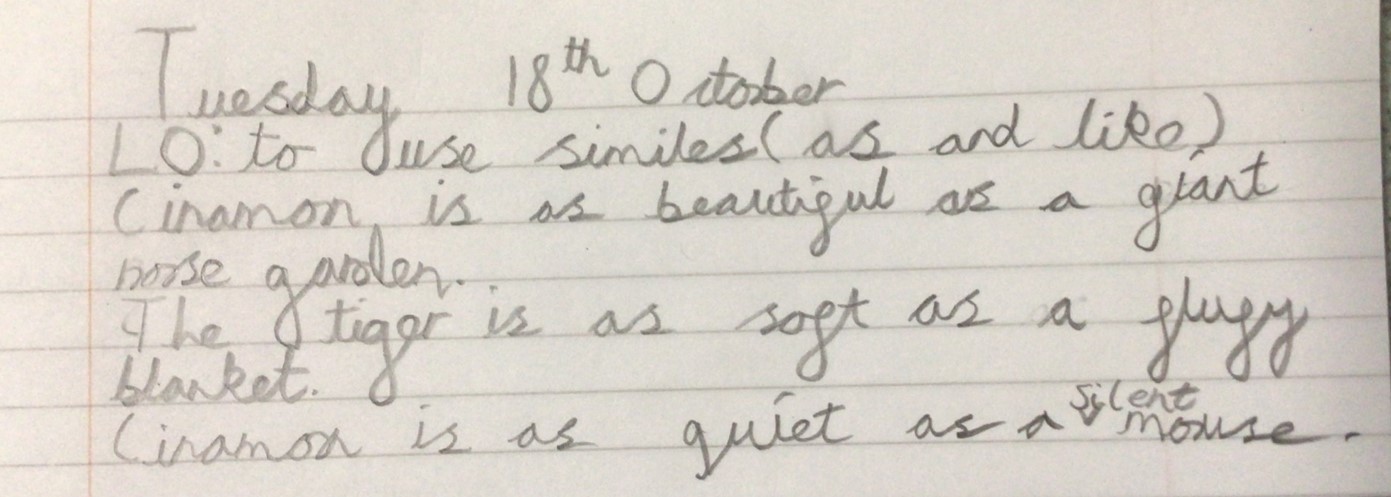 Tuesday 18th October
LO: to use similes (as and like)
Cinamon is as beautiful as a giant
rose garden.
The tiger is as soft as a flufy
blanket.
Cinamon is as quiet as a silent mouse.